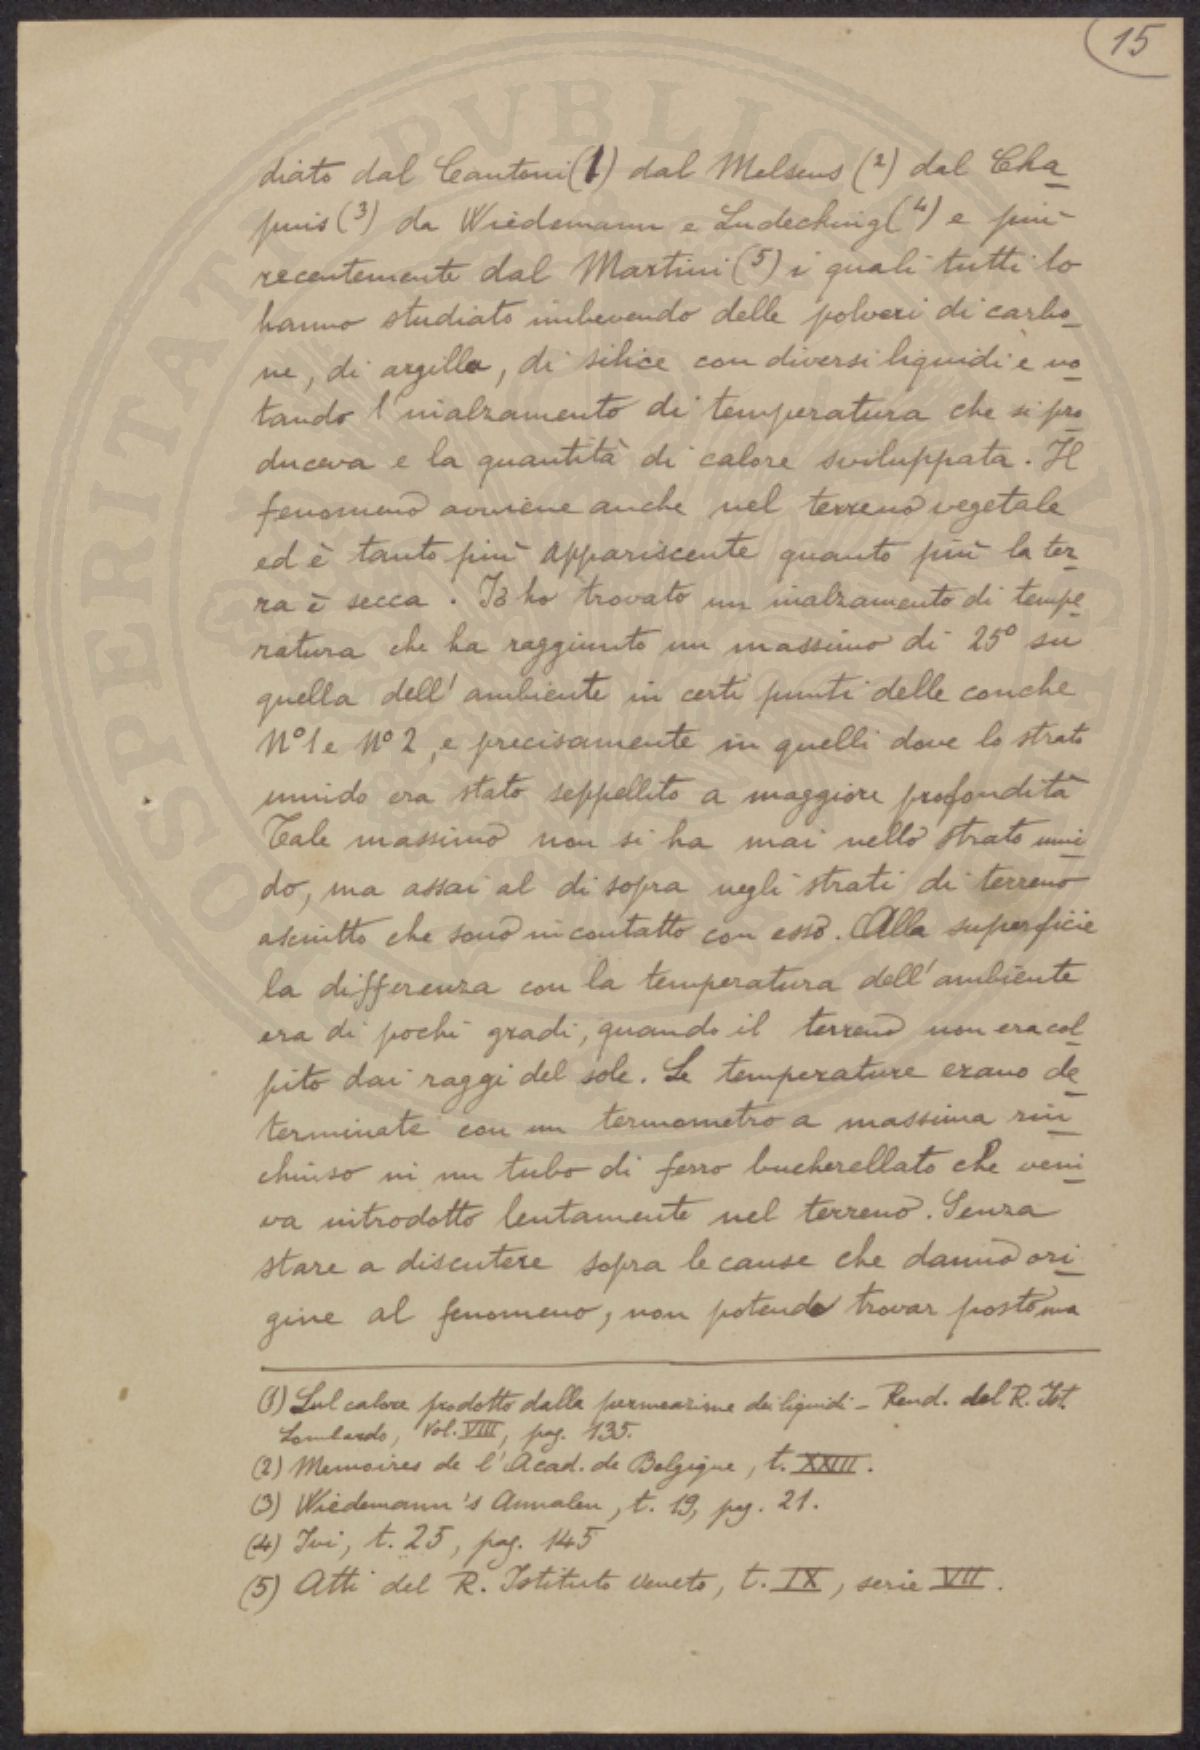 15
diato dal Cantoni (1) dal Melsens (2) dal Cha-
puis (3) da Wiedemann e Ludecking (4) e più
recentemente dal Martini (5) i quali tutti lo
hanno studiato imbevendo delle polveri di carbo-
ne, di argilla, di silice con diversi liquidi e no-
tando l'inalzamento di temperatura che si pro-
duceva e la quantità di calore sviluppata. Il
fenomeno avviene anche nel terreno vegetale
ed è tanto più appariscente quanto più la ter-
ra è secca. Io ho trovato un inalzamento di tempe-
ratura che ha raggiunto un massimo di 25° su
quella dell'ambiente in certi punti delle conche
N° 1 e N° 2, e precisamente in quelli dove lo strato
umido era stato seppellito a maggiore profondità
Tale massimo non si ha mai nello strato umi-
do, ma assai al di sopra negli strati di terreno
asciutto che sono in contatto con esso. Alla superficie
la differenza con la temperatura dell'ambiente
era di pochi gradi, quando il terreno non era col-
pito dai raggi del sole. Le temperature erano de-
terminate con un termometro a massima rin-
chiuso in un tubo di ferro bucherellato che veni-
va introdotto lentamente nel terreno. Senza
stare a discutere sopra le cause che danno ori-
gine al fenomeno, non potendo trovar posto una
(1) Sul calore prodotto dalla permeazione dei liquidi - Rend. del R. Ist.
Lombardo, Vol. VIII, pag. 135.
(2) Memoires de l'Acad. de Belgique, t. XXIII.
(3) Wiedemann's Annalen, t. 19, pag. 21.
(4) Ivi, t. 25, pag. 145
(5) Atti del R. Istituto Veneto, t. IX, serie VII.